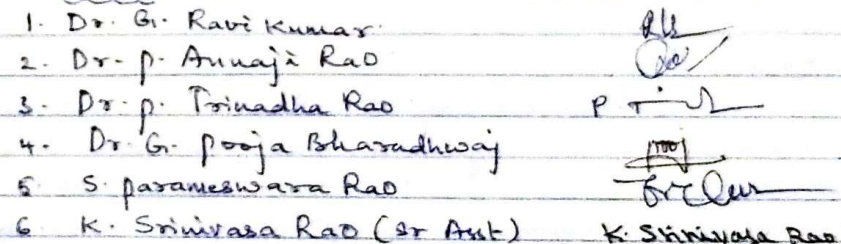 1. Dr. G. Ravi Kumar
2. Dr. P. Annaji Rao
3. Dr. P. Trinadha Rao P
4. Dr. G. Pooja Bharadhwaj Pooj
5. S. Parameswara Rao
6. K. Srinivasa Rao (Sr Asst) K. Srinivasa Rao